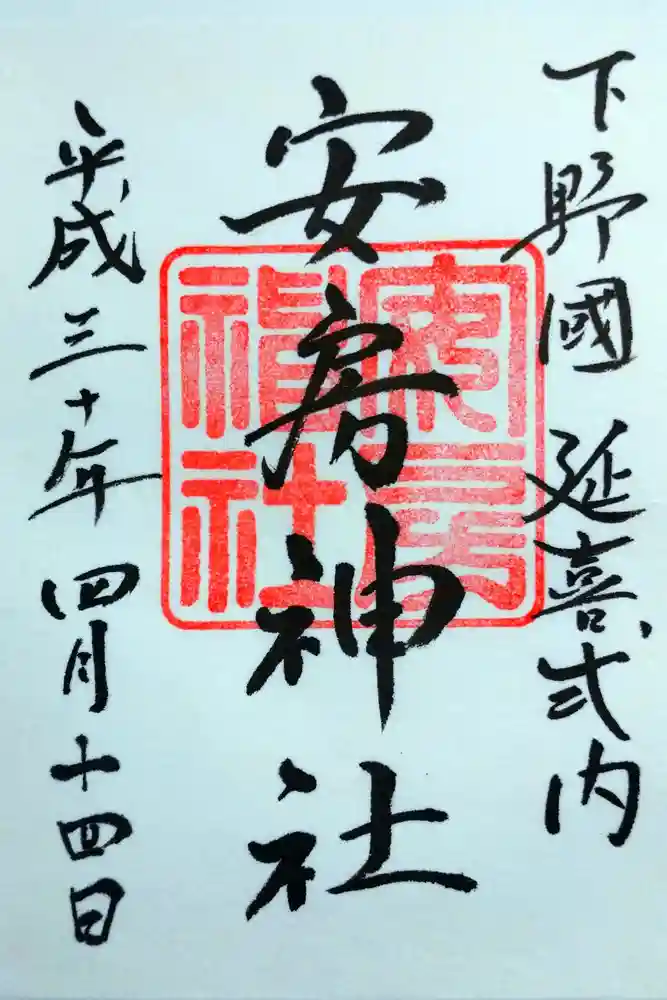 下野國 延喜式内
安房神社
安房神社
平成三十年 四月十四日